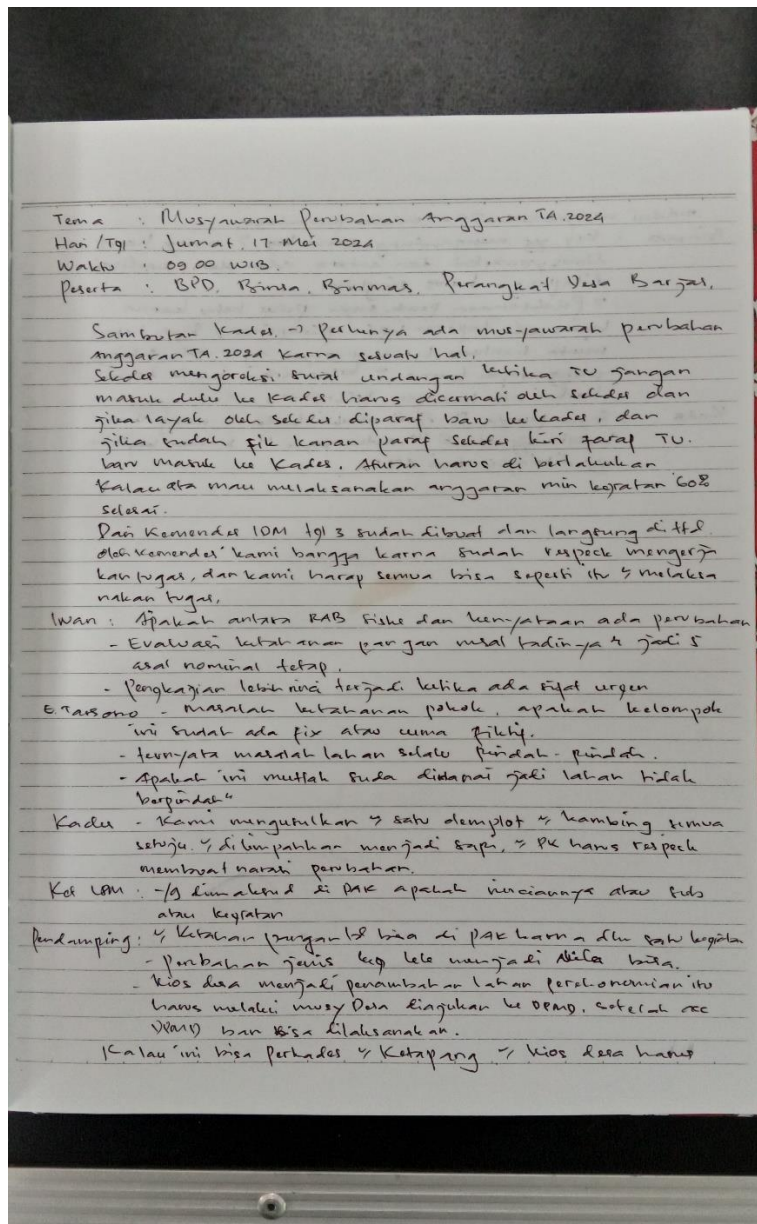 Tema : Musyawarah Perubahan Anggaran TA.2024
Hari/Tgl : Jumat, 17 Mei 2024
Waktu : 09 00 WIB.
Peserta : BPD, Binsa, Binmas, Perangkat Desa Banjar,
Sambutan Kades. → Perlunya ada mus-yawarah perubahan
Anggaran TA.2024 Karna sesuatu hal.
Sekdes mengoroksi surat undangan ketika TU jangan
masuk dulu ke Kades harus dicermati oleh sekdes dan
jika layak oleh sekdes diparaf baru ke kades, dan
jika sudah fik kanan paraf Sekdes kiri paraf TU.
baru masuk ke Kades. Aturan harus di berlakukan
Kalau ata mau melaksanakan anggaran min kegiatan 60%
selesai.
Dari Kemendes IDM tgl 3 sudah dibuat dan langsung di ttd
oleh kemendes' kami bangga karna sudah respeck mengerja
kan tugas, dan kami harap semua bisa seperti itu melaksa
nakan tugas,
Iwan : Apakah antara RAB Siske dan kenyataan ada perubahan
- Evaluasi ketahanan pangan misal tadinya 4 jadi 5
asal nominal tetap.
- Pengkajian lebih rinci terjadi ketika ada sifat urgen
E. Tarsono - masalah ketahanan pokok, apakah kelompok
ini sudah ada fix atau cuma fiktif.
- ternyata masalah lahan selalu pindah-pindah.
- Apakah ini mutlak suda didanai jadi lahan tidak
berpindah"
Kades - Kami mengusulkan satu demplot kambing semua
setuju. dilimpahkan menjadi sapi, PK harus respeck
membuat narasi perubahan.
Ket LPM : - yg dimaksud di PAK apakah rinciannya atau sub
atau kegiatan
Pendamping : Ketahan pangan bisa di PAK karna dlm satu kegiatan
- perubahan jenis keg lele menjadi Nila bisa.
- kios desa menjadi penambahan lahan perekonomian itu
harus melalui musy Desa diajukan ke DPMD, setelah acc
DPMD baru bisa dilaksanakan.
Kalau ini bisa Perkades Ketapang kios desa harus